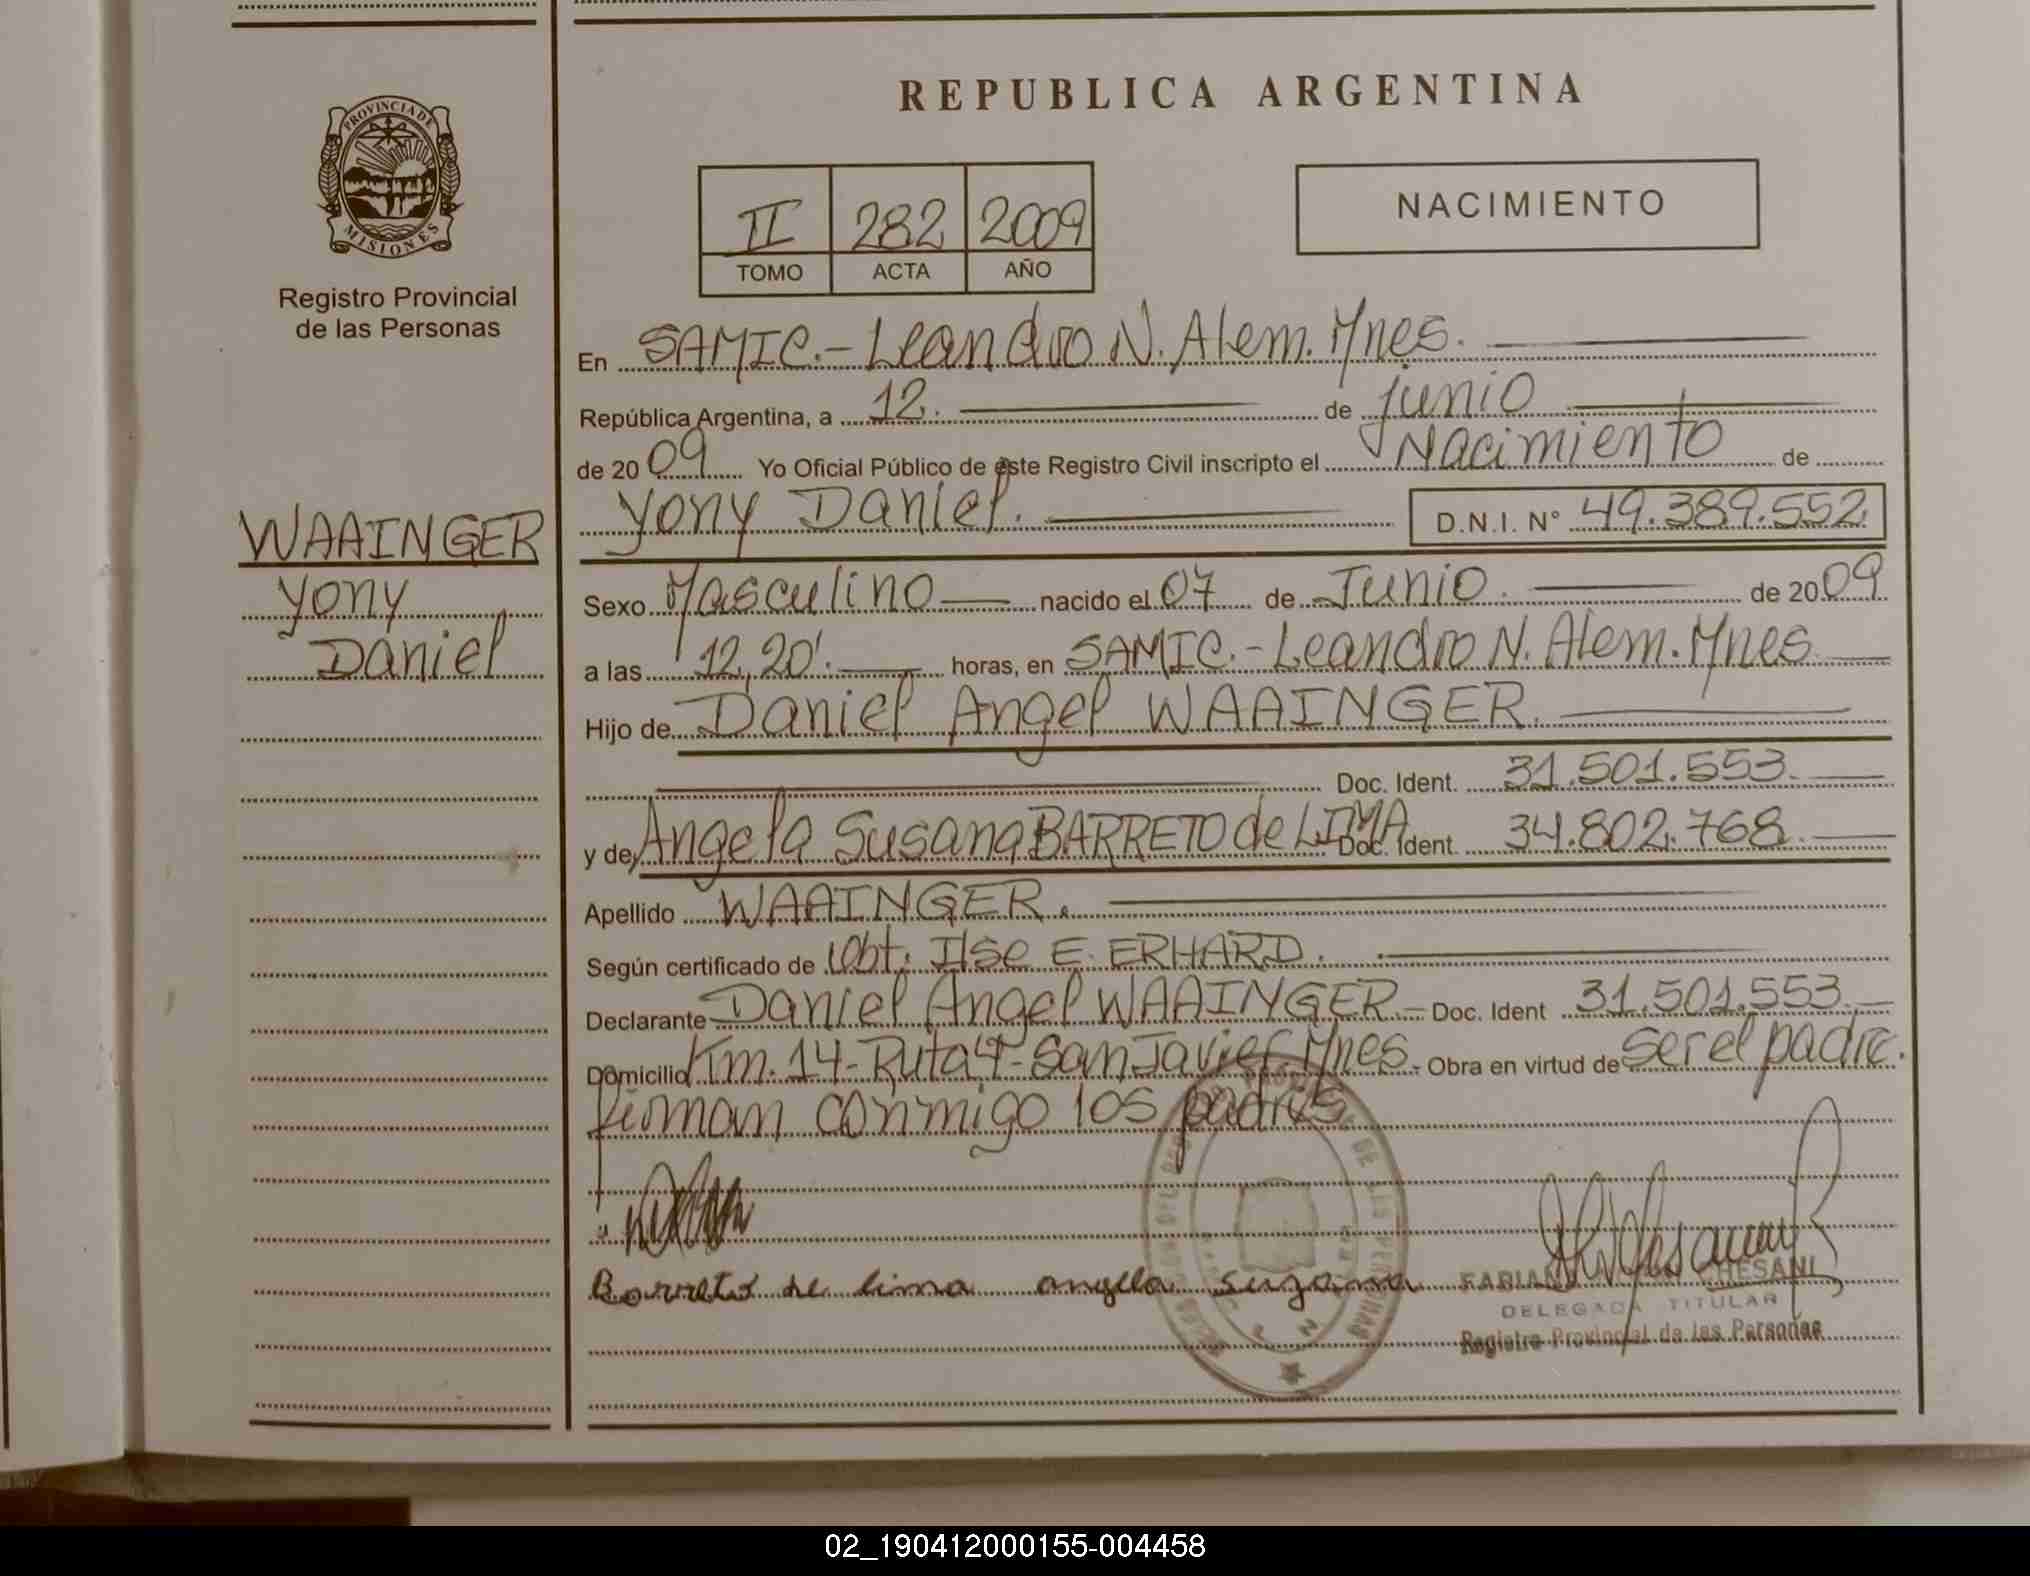 PROVINCIA DE
MISIONES
Registro Provincial
de las Personas
WAAINGER
Yony
Daniel
REPUBLICA ARGENTINA
II 282 2009
TOMO ACTA AÑO
NACIMIENTO
En SAMIC.- Leandro N. Alem. Mnes.
República Argentina, a 12. de junio
de 2009 Yo Oficial Público de este Registro Civil inscripto el Nacimiento de
Yony Daniel. D.N.I. N° 49.389.552
Sexo Masculino nacido el 07 de Junio. de 2009
a las 12,20'. horas, en SAMIC.- Leandro N. Alem. Mnes
Hijo de Daniel Angel WAAINGER.
Doc. Ident. 31.501.553.
y de Angela Susana BARRETO de LIMA Doc. Ident. 34.802.768.
Apellido WAAINGER.
Según certificado de Obt. Ilse E. ERHARD.
Declarante Daniel Angel WAAINGER - Doc. Ident 31.501.553.
Domicilio Km. 14 - Ruta 4 - San Javier Mnes. Obra en virtud de ser el padre.
firman conmigo los padres
Barreto de lima angela suzana
DELEGADA TITULAR
Registro Provincial de las Personas
02_190412000155-004458